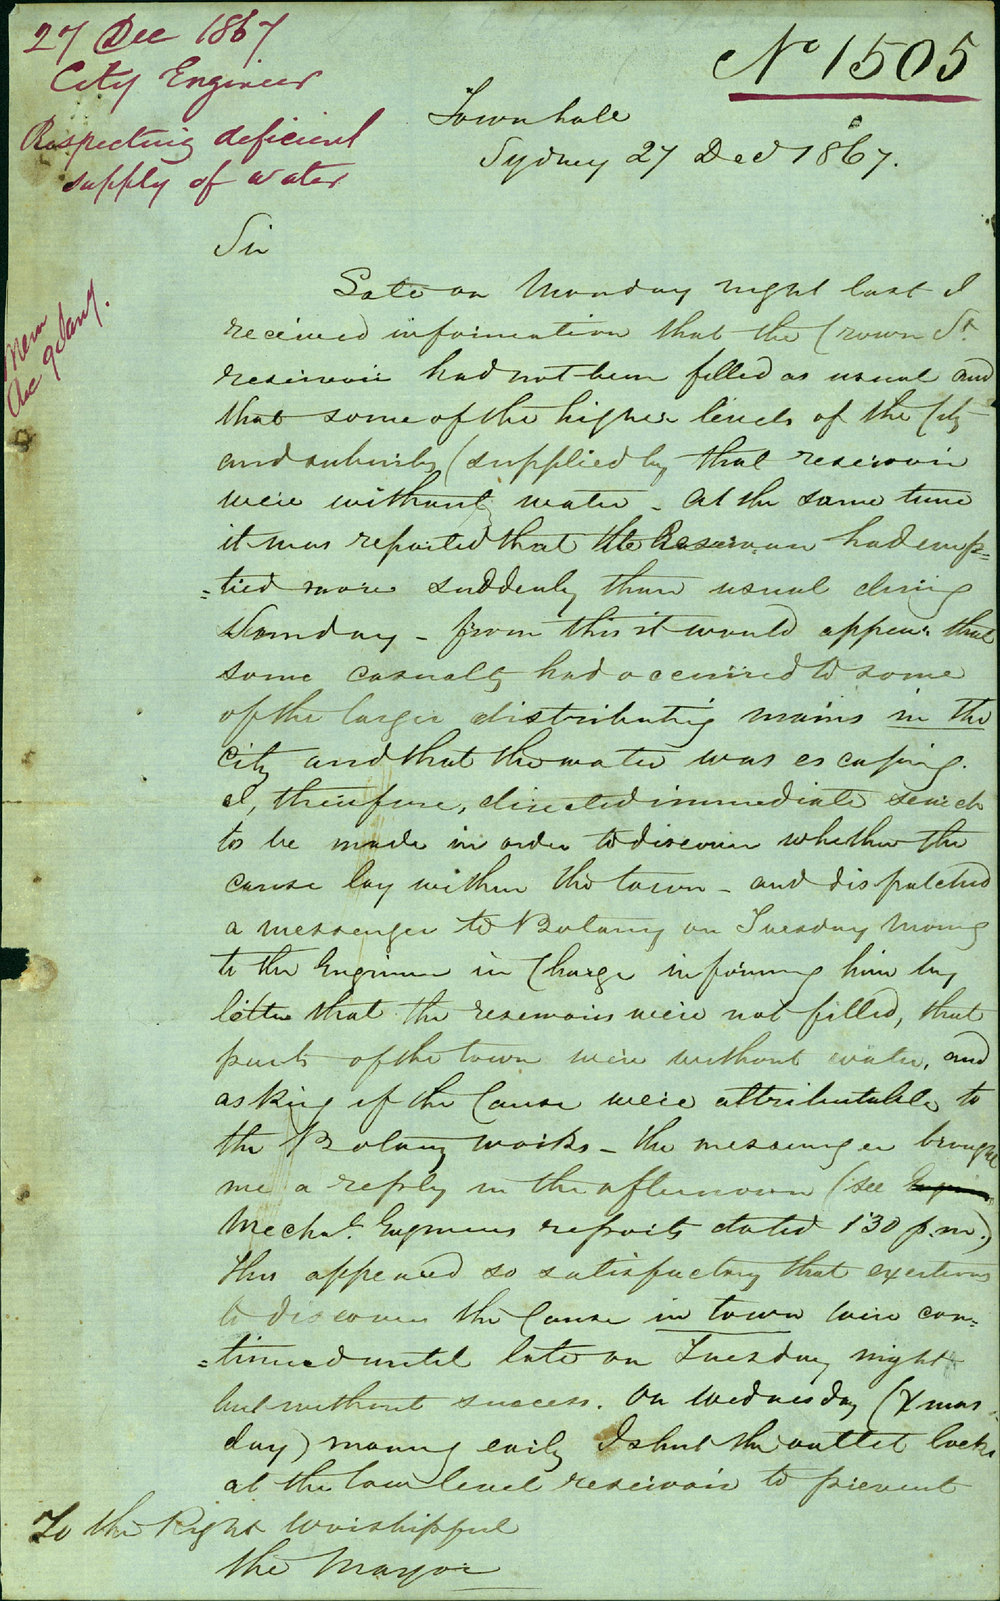 27 Dec 1867
City Engineer
Respecting deficient
supply of water
No 1505
Town hall
Sydney 27 Decr 1867.
Sir
Late on Monday night last I
received information that the Crown St.
reservoir had not been filled as usual and
that some of the higher levels of the City
and suburbs (supplied by that reservoir
were without water - At the same time
it was reported that the Reservoir had emp=
=tied more suddenly than usual during
Sunday - from this it would appear that
some casualty had occurred to some
of the larger distributing mains in the
City and that the water was escaping.
I, therefore, directed immediate search
to be made in order to discover whether the
cause lay within the town - and dispatched
a messenger to Botany on Tuesday morng
to the Engineer in Charge informing him by
letter that the reservoirs were not filled, that
parts of the town were without water, and
asking if the Cause were attributable to
the Botany works - the messenger brought
me a reply in the afternoon (see
Mechal. Engineers reports dated 1.30 p.m.)
this appeared so satisfactory that exertions
to discover the Cause in town were con=
=tinued until late on Tuesday night
but without success. On Wednesday (Xmas
day) morning early I shut the outlet cocks
at the low level reservoir to prevent
To the Right Worshipful
the Mayor